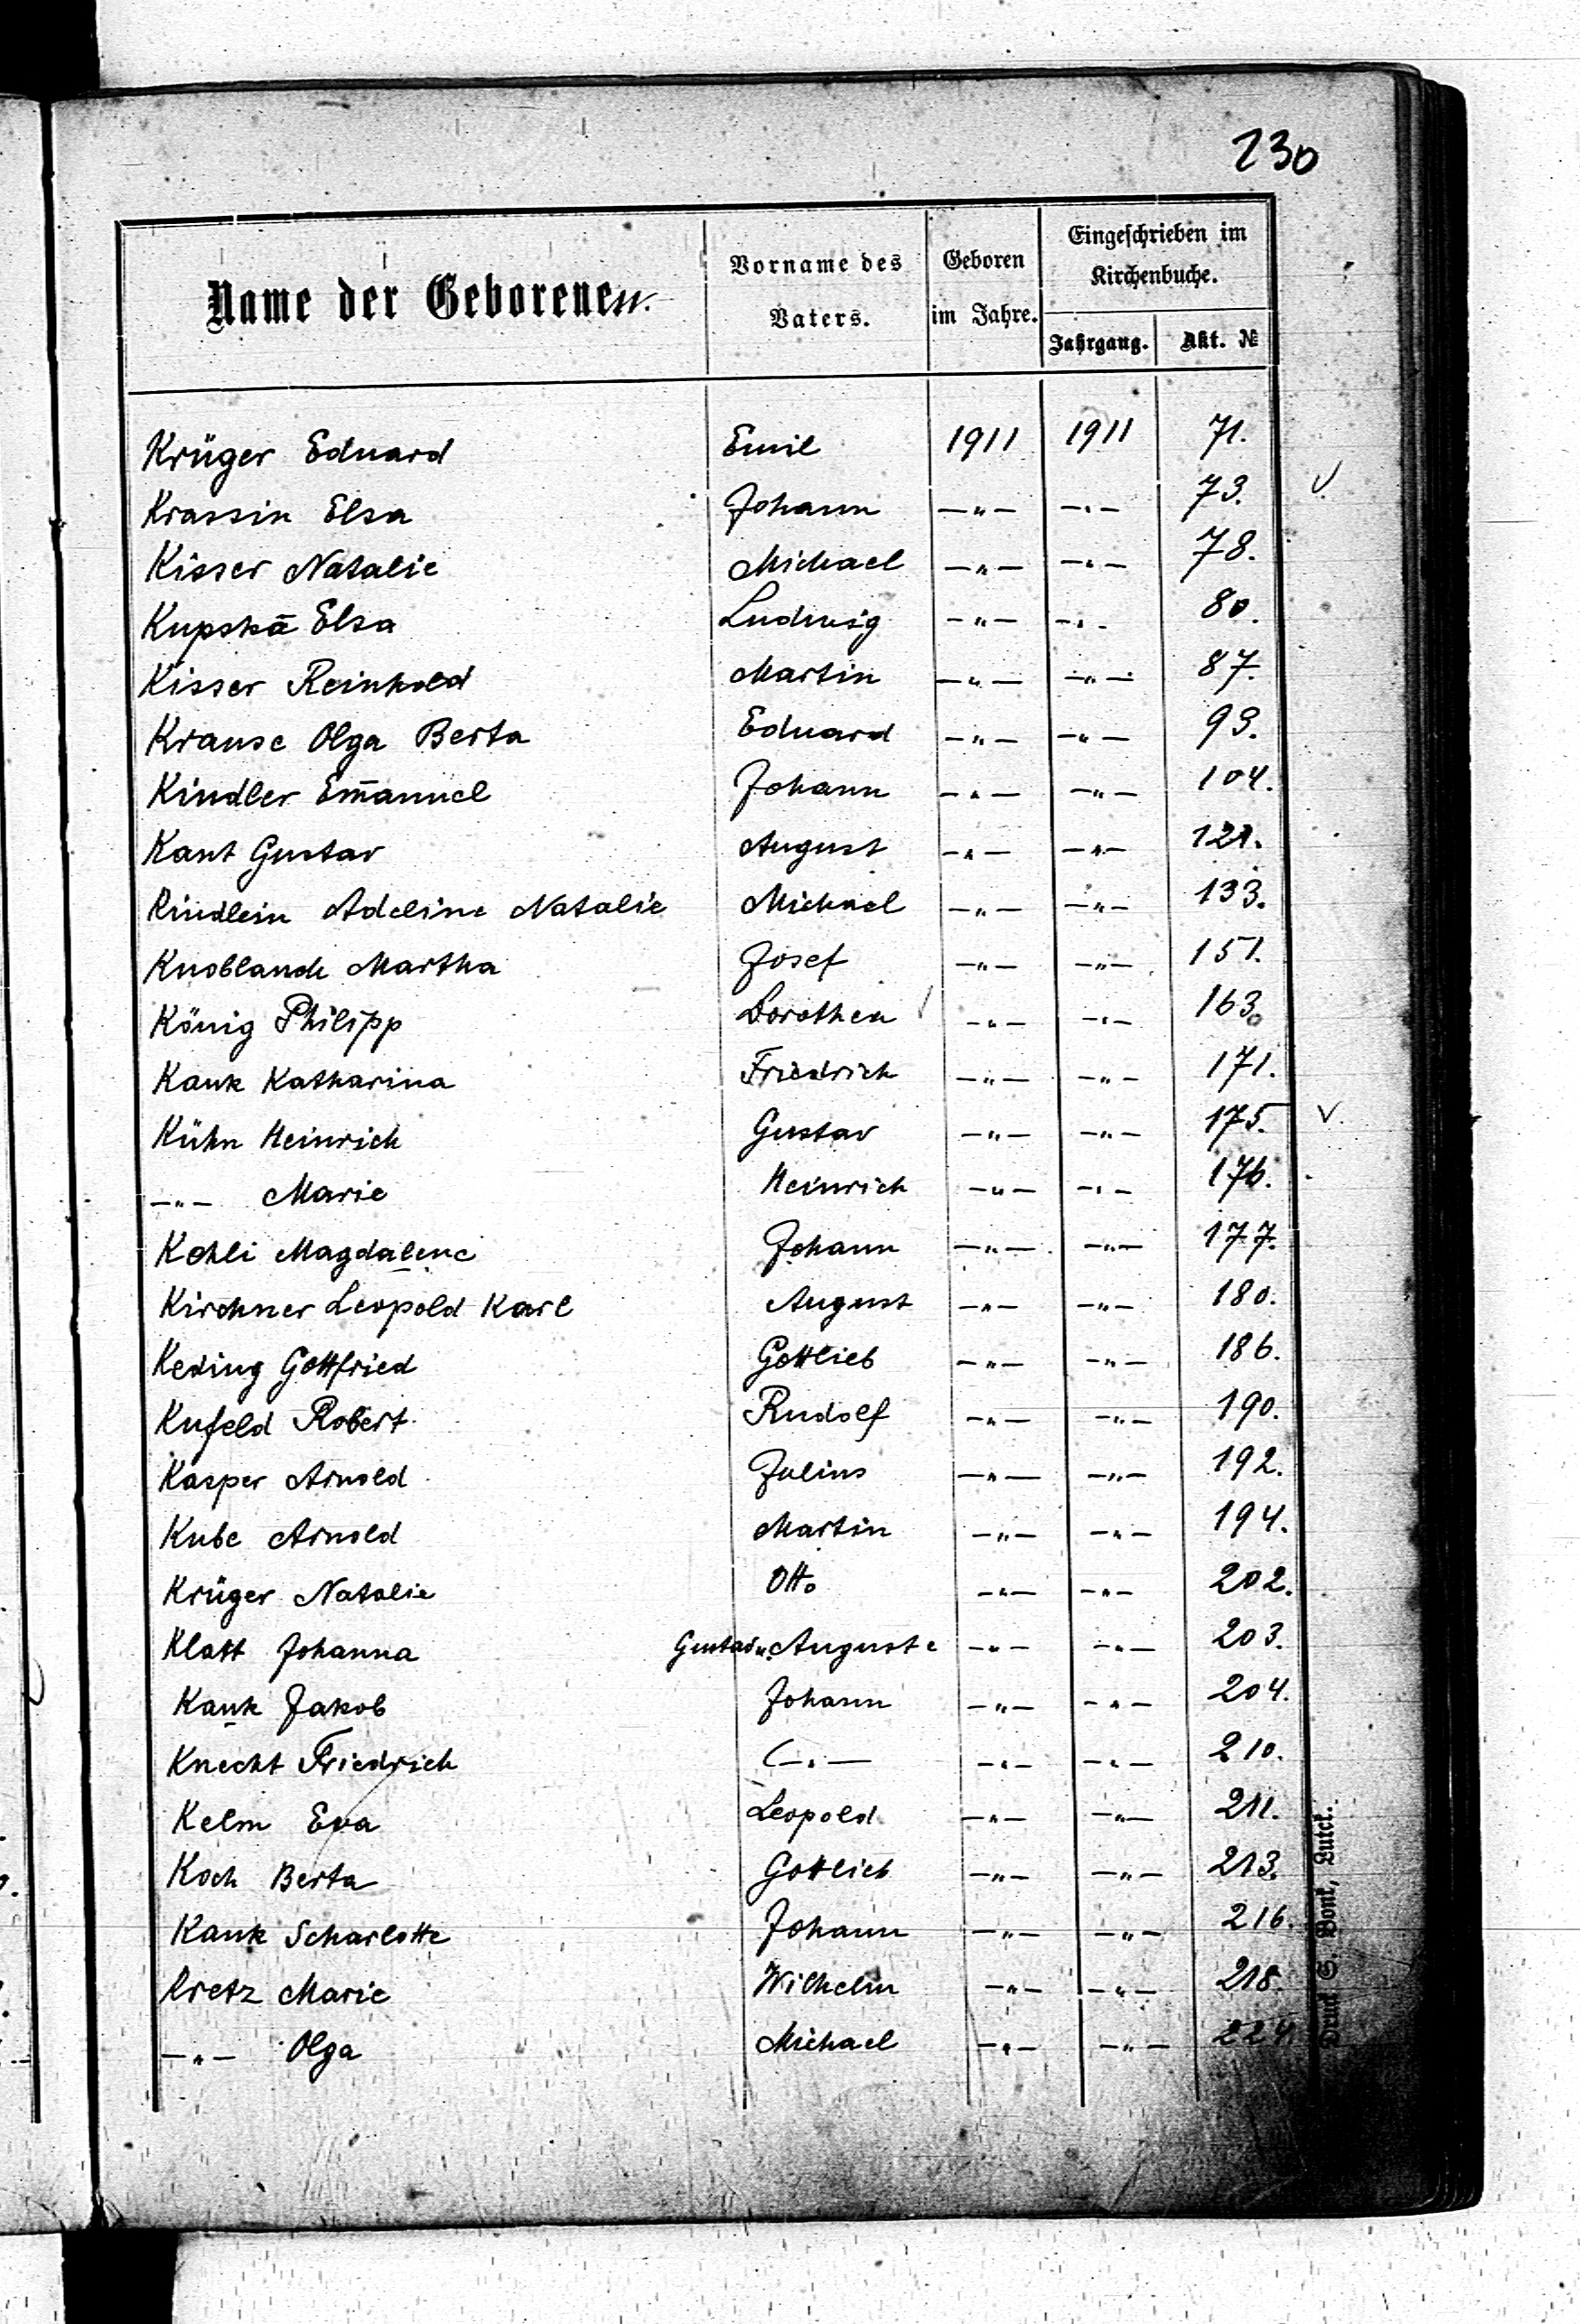 230
Name der Geborenen.
Vorname des Vaters.
Geboren im Jahre.
Eingeschrieben im Kirchenbuche.
Jahrgang. Akt. №
Krüger Eduard Emil 1911 1911 71.
Krassin Elsa Johann —"— —"— 73. V
Kisser Natalie Michael —"— —"— 78.
Kupskā Elsa Ludwig —"— —"— 80.
Kisser Reinhold Martin —"— —"— 87.
Krause Olga Berta Eduard —"— —"— 93.
Kindler Em̄anuel Johann —"— —"— 104.
Kant Gustav August —"— —"— 121.
Kindlein Adeline Natalie Michael —"— —"— 133.
Knoblauch Martha Josef —"— —"— 151.
König Philipp Dorothea —"— —"— 163.
Kauk Katharina Friedrich —"— —"— 171.
Kühn Heinrich Gustav —"— —"— 175. V.
—"— Marie Heinrich —"— —"— 176.
Kohli Magdalene Johann —"— —"— 177.
Kirchner Leopold Karl August —"— —"— 180.
Keding Gottfried Gottlieb —"— —"— 186.
Kufeld Robert Rudolf —"— —"— 190.
Kasper Arnold Julius —"— —"— 192.
Kube Arnold Martin —"— —"— 194.
Krüger Natalie Otto —"— —"— 202.
Klatt Johanna Gustav u. Auguste —"— —"— 203.
Kauk Jakob Johann —"— —"— 204.
Knecht Friedrich —"— —"— —"— 210.
Kelm Eva Leopold —"— —"— 211.
Koch Berta Gottlieb —"— —"— 213.
Kauk Scharlotte Johann —"— —"— 216.
Kretz Marie Wilhelm —"— —"— 218.
—"— Olga Michael —"— —"— 224.
Druck S. Bonk, Lutck.